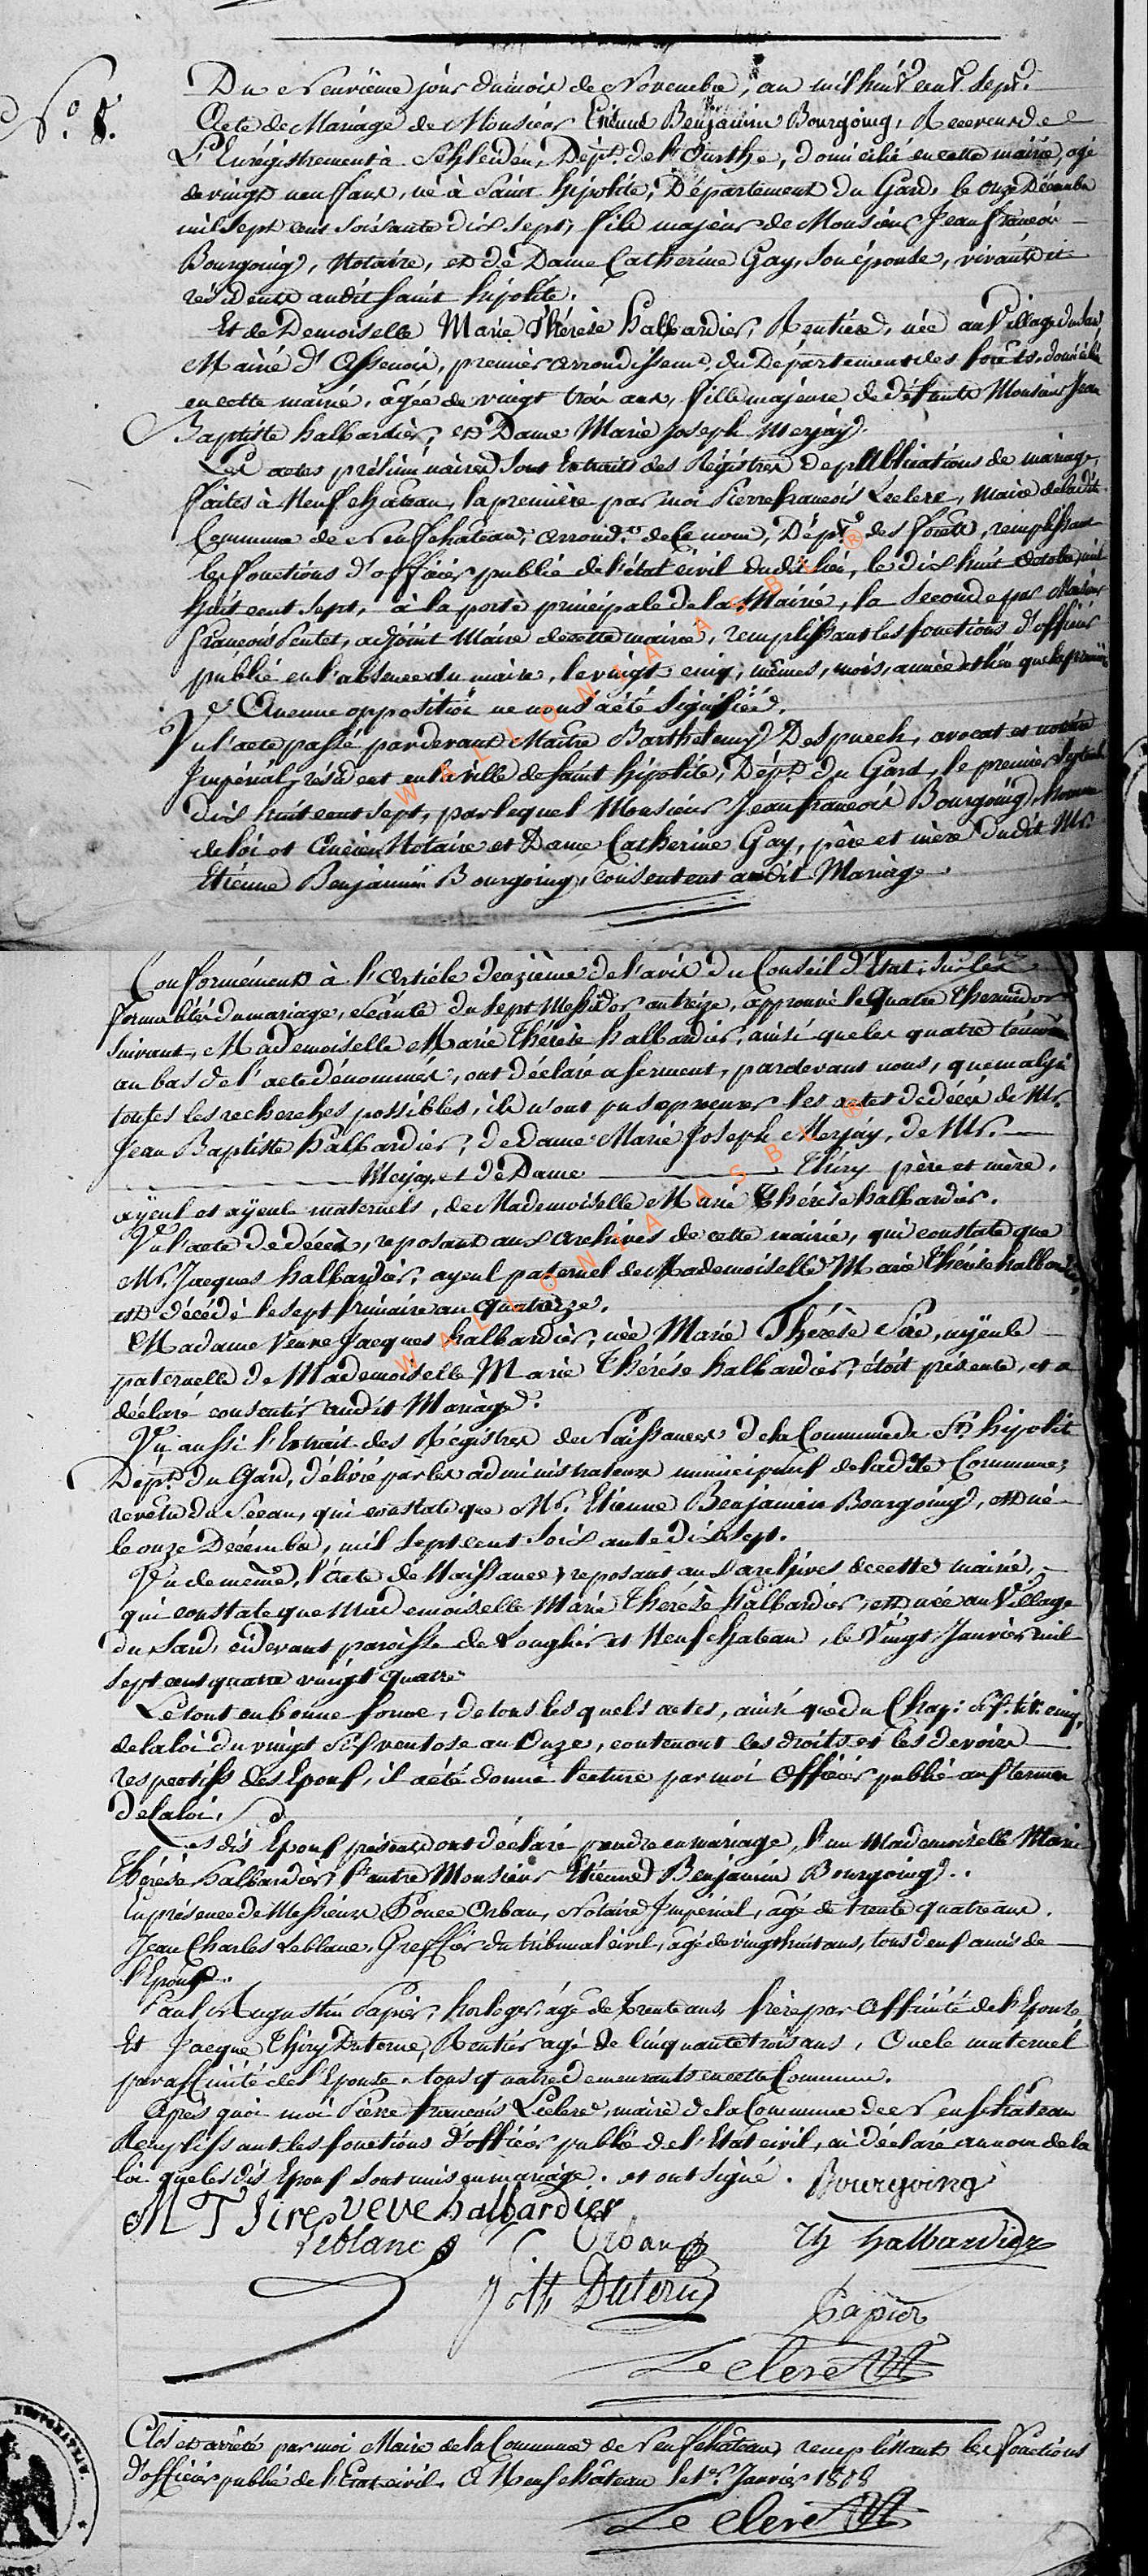 N.o 8.
Du Neuvième jour du mois de Novembre, an mil huit cent sept.
Acte de Mariage de Monsieur Etienne Benjamin Bourgoing, Receveur de
L'Enrégistrement à Schleiden, Dépt. de l'Ourthe, domicilié en cette mairie, agé
de vingt neuf ans, né à Saint hipolite, Département du Gard, le onze Décembre
mil sept cent soixante dix sept, fils majeur de Monsieur Jean françois
Bourgoing, Notaire, et de Dame Catherine Gay, son épouse, vivants et
résidents audit saint hipolite.
Et de Demoiselle Marie Thérèse halbardier, Rentière, née au Village du Sard,
Mairie d'Assenois, premier arrondissemt. du Département des forêts, domiciliée
en cette mairie, âgée de vingt trois ans, fille majeure de défunts Monsieur Jean
Baptiste halbardier, et Dame Marie Joseph Merjay.
Les actes préliminaires sont Extraits des Régistres de publications de mariage,
faites à Neufchâteau, la première par moi Pierre françois Leclere, maire de ladite
Commune de Neufchâteau, arrondt. de Ce nom, Dépt. des forêts, remplissant
les fonctions d'officier public de l'état civil dudit lieu, le dix huit octobre mil
huit cent sept, à la porte principale de la Mairie, la seconde par
françois Pentet, adjoint Maire de cette mairie, remplissant les fonctions d'officier
public en l'absence du maire, le vingt cinq, mêmes, mois, année et lieu que la première
Aucune opposition ne nous a été signifiée.
Vu l'acte passé pardevant Maître Barthelemy Despuech, avocat et notaire
Impérial, résident en la ville de saint hipolite, Dépt. du Gard, le premier Septembre
dix huit cent sept, par lequel Monsieur Jean françois Bourgoing, homme
de loi et Ancien Notaire et Dame Catherine Gay, père et mère dudit Mr.
Etienne Benjamin Bourgoing, consentent audit Mariage.
Conformément à l'Article deuzième de l'avis du Conseil d'Etat, sur les
formalités du mariage, séance du sept Messidor an treize, approuvé le Quatre Thermidor
suivant, Mademoiselle Marie Thérèse halbardier, ainsi que les quatre témoins
au bas de l'acte dénommés, ont déclaré a serment, pardevant nous, que malgré
toutes les recherches possibles, ils n'ont pu se procurer les actes de décès de Mr.
Jean Baptiste halbardier, de Dame Marie Joseph Merjay, de Mr.
Merjay, et de Dame Thiry père et mère,
ayeul et ayeule maternels, de Mademoiselle Marie Thérèse halbardier.
Vu l'acte de décès, reposant aux Archives de cette mairie, qui constate que
Mr. Jacques halbardier, ayeul paternel de Mademoiselle Marie Thérèse halbardier,
est décédé le sept frimaire an Quatorze.
Madame Veuve Jacques halbardier, née Marie Thérèse Sire, ayeule
paternelle de Mademoiselle Marie Thérèse halbardier, étoit présente, et a
déclaré consentir audit Mariage.
Vu aussi l'Extrait des Régistres de Naissances de la Commune de St. hipolit
Dépt. du Gard, délivré par les administrateurs municipaux de ladite Commune,
revêtu du Sceau, qui constate que Mr. Etienne Benjamin Bourgoing, est né
le onze Décembre, mil sept cent soixante dix sept.
Vu de même, l'Acte de Naissance, reposant aux archives de cette mairie,
qui constate que Mademoiselle Marie Thérèse halbardier, est née au Village
du Sard, cidevant paroisse de Longlier et Neufchateau, le Vingt Janvier mil
sept cent quatre vingt quatre
Le tout en bonne forme, de tous les quels actes, ainsi que du Chap: six. tit. cinq,
de la loi du vingt six ventose an Onze, contenant les droits et les devoirs
respectifs des Epoux, il a été donné lecture par moi Officier public aux termes
de la loi.
Les dits Epoux présents ont déclaré prendre en mariage, l'un Mademoiselle Marie
Thérèse halbardier, l'autre Monsieur Etienne Benjamin Bourgoing.
En présence de Messieurs Ponce Orban, Notaire Impérial, agé de trente quatre ans.
Jean Charles Leblanc, Greffier du tribunal civil, agé de vingt huit ans, tous deux amis de
l'Epoux.
Paul Augustin Papier, horloger, agé de Trente ans, frère par Affinité de l'Epouse
Et Jacque Thiry Duterne, Rentier agé de Cinquante trois ans, Oncle maternel
par affinité de l'Epouse, tous quatre demeurants en cette Commune.
Après quoi moi Pierre françois Leclere, maire de la Commune de Neufchâteau
Remplissant les fonctions d'officier public de l'Etat civil, ai déclaré au nom de la
loi que lesdits Epoux sont unis en mariage. et ont signé. Bourgoing
M T Sire veve halbardier
Leblanc Orban Th halbardier
Duterne
Papier
Leclere
Clos et arrêté par moi Maire de la Commune de Neufchâteau, remplissant les fonctions
d'officier public de l'Etat civil. A Neufchâteau le 1er. Janvier 1808
Leclere
WALLONIA ASBL ®
WALLONIA ASBL ®